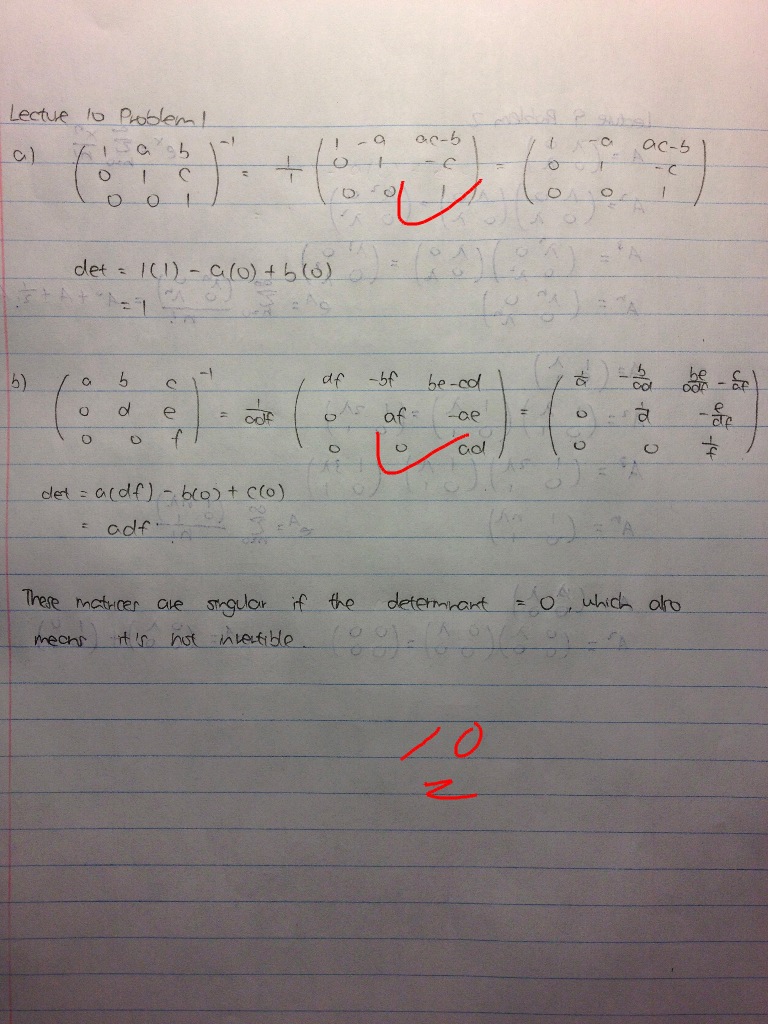 Lecture 10 Problem 1
a) (1 a b; 0 1 c; 0 0 1)^-1 = 1/1 (1 -a ac-b; 0 1 -c; 0 0 1) = (1 -a ac-b; 0 1 -c; 0 0 1)
det = 1(1) - a(0) + b(0)
= 1
b) (a b c; 0 d e; 0 0 f)^-1 = 1/adf (df -bf be-cd; 0 af -ae; 0 0 ad) = (1/a -b/ad be/adf - c/af; 0 1/d -e/df; 0 0 1/f)
det = a(df) - b(0) + c(0)
= adf
These matrices are singular if the determinant = 0, which also
means it's not invertible.
10